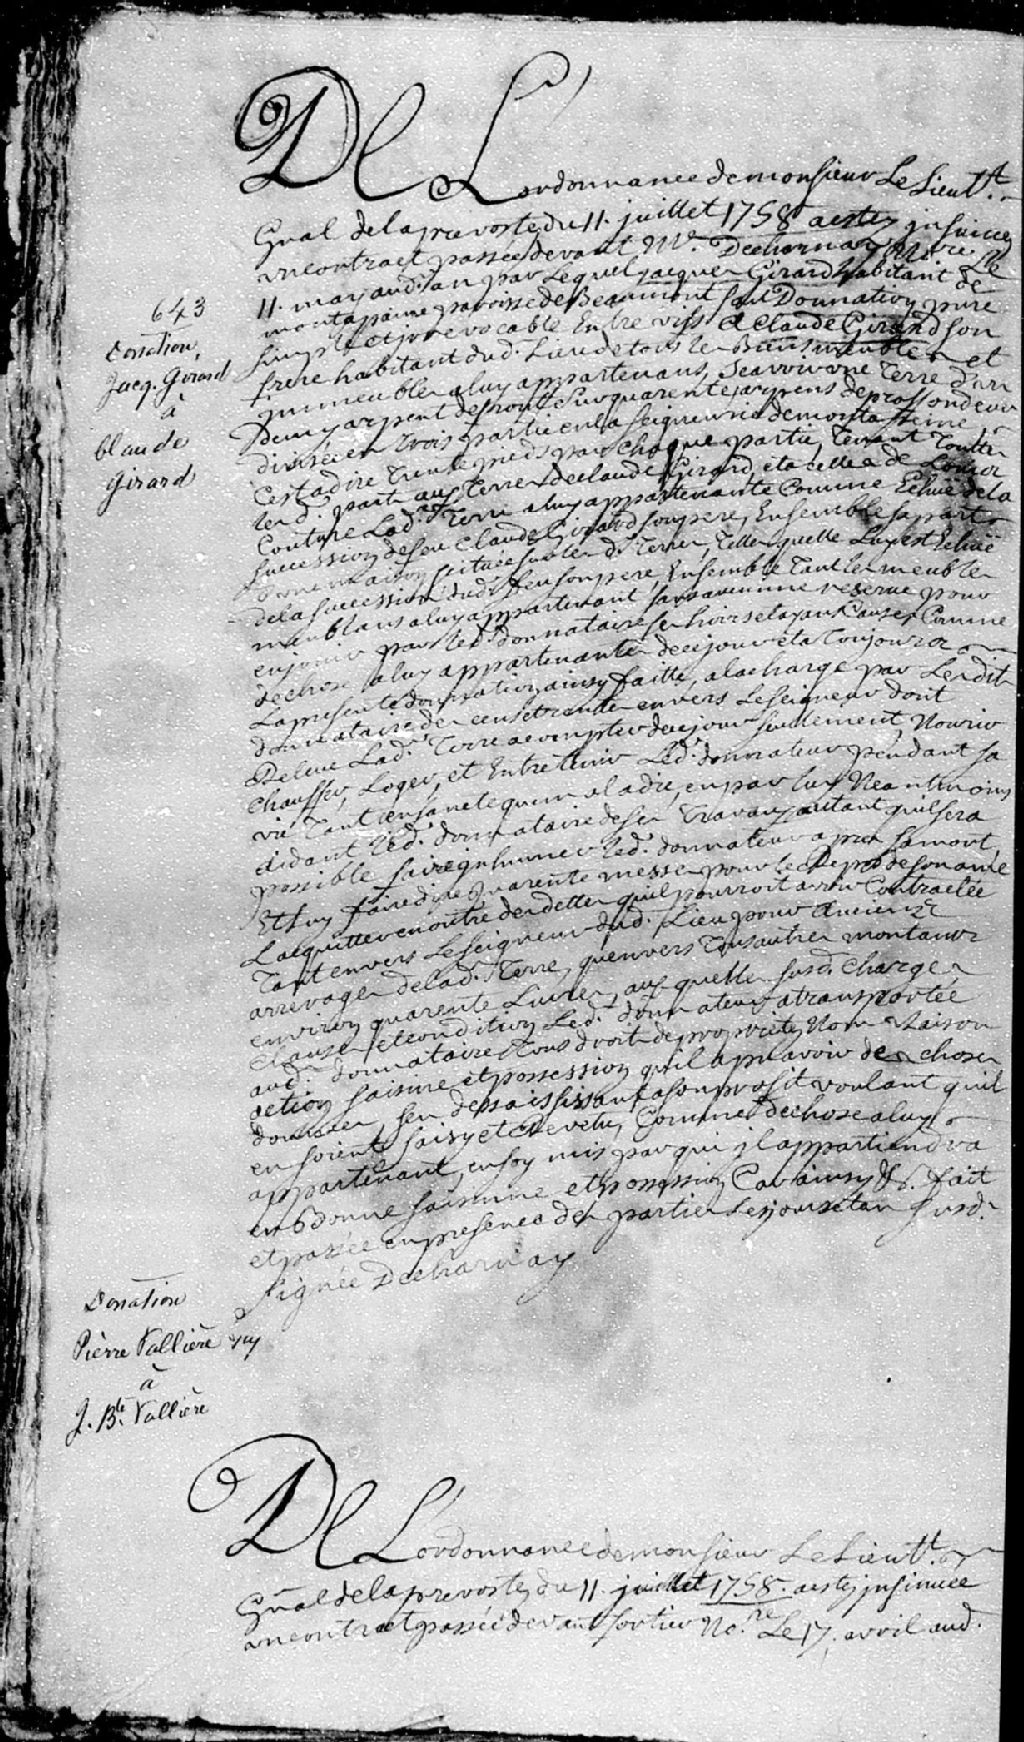 De L'ordonnance de monsieur Le Lieutt.
Gñal de la prevosté du 11. juillet 1758 a esté jnsinuee
un contract passée devant Mr. Decharnay No.re Le
11. may aud. an par Lequel jacques Girard habitant de
montapeine paroisse de Beaumont fait Donnation pure
simple et jrrevocable Entre vifs A Claude Girard son
frere habitant dud. Lieu de tous les Biens meubles et
jmmeubles a luy appartenans, Scavoir une Terre d'un
Demy arpent de front sur quarente arpens de proffondeur
divisée en trois partie en la seigneurie de
Cest a dire Trente pieds par Chaque partie, Tenant Toutte
led. part aux Terres de Claude Girard, et a celle de
Lad. Terre a luy appartenante Comme Echüe de la
succession de feu Claude Girard son pere, Ensemble sa part
dune maison scituée sur led. Terres, Telle quelle Luy est Echüe
de la succession dud. feu son pere, Ensemble Tant les meubles
meublans a luy appartenant sans aucunne reserve pour
en jouir par led. donnataire ses hoirs et ayans Causes Comme
de chose a luy appartenante de ce jour et a Toujours
La presente donnation ainsy faitte, a la charge par Ledit
donnataire des cens et rentes envers Le seigneur dont
Releve Lad. Terre a compter de ce jour seulement, Nourir
Chauffer, Loger, et Entretenir Led. donnateur pendant sa
vie Tant en santé que en maladie, en par luy Neantmoins
aidant Led. donnataire de ses Travaux autant quil sera
possible faire jnhumer Led. donnateur apres sa mort,
Et luy faire dire quarente messes pour le Repos de son ame
L'acquitter en outre des dettes quil pourroit avoir Contractée
Tant envers Le seigneur dud. Lieu pour anciens
arrerages de lad. Terre, quenvers Tous autres montant
environ quarente Livres, aux quelles susd. Charges
Clauses et condition Led. donnateur a transportée
aud. donnataire Tous droits de propriété Nom Raison
action saisine et possession quil a pu avoir des choses
données, sen dessaississant a son proffit voulant quil
en soient saisy et revetu, Comme de chose a luy
appartenant, en foy mis par qui jl appartiendra
en Bonne saissinne et possession Car ainsy &. fait
et passée en presence des parties Les jours et an susd.
signée Decharnay
643
Donation
Jacq. Girard
à
Claude
Girard
Donation
Pierre Vallière
à
J. Bte. Vallière
De L'ordonnance de monsieur Le Lieutt.
Gñal de la prevosté du 11. juillet 1758. a esté jnsinuée
un contract passée devant fortier No.re Le 17. avril aud.